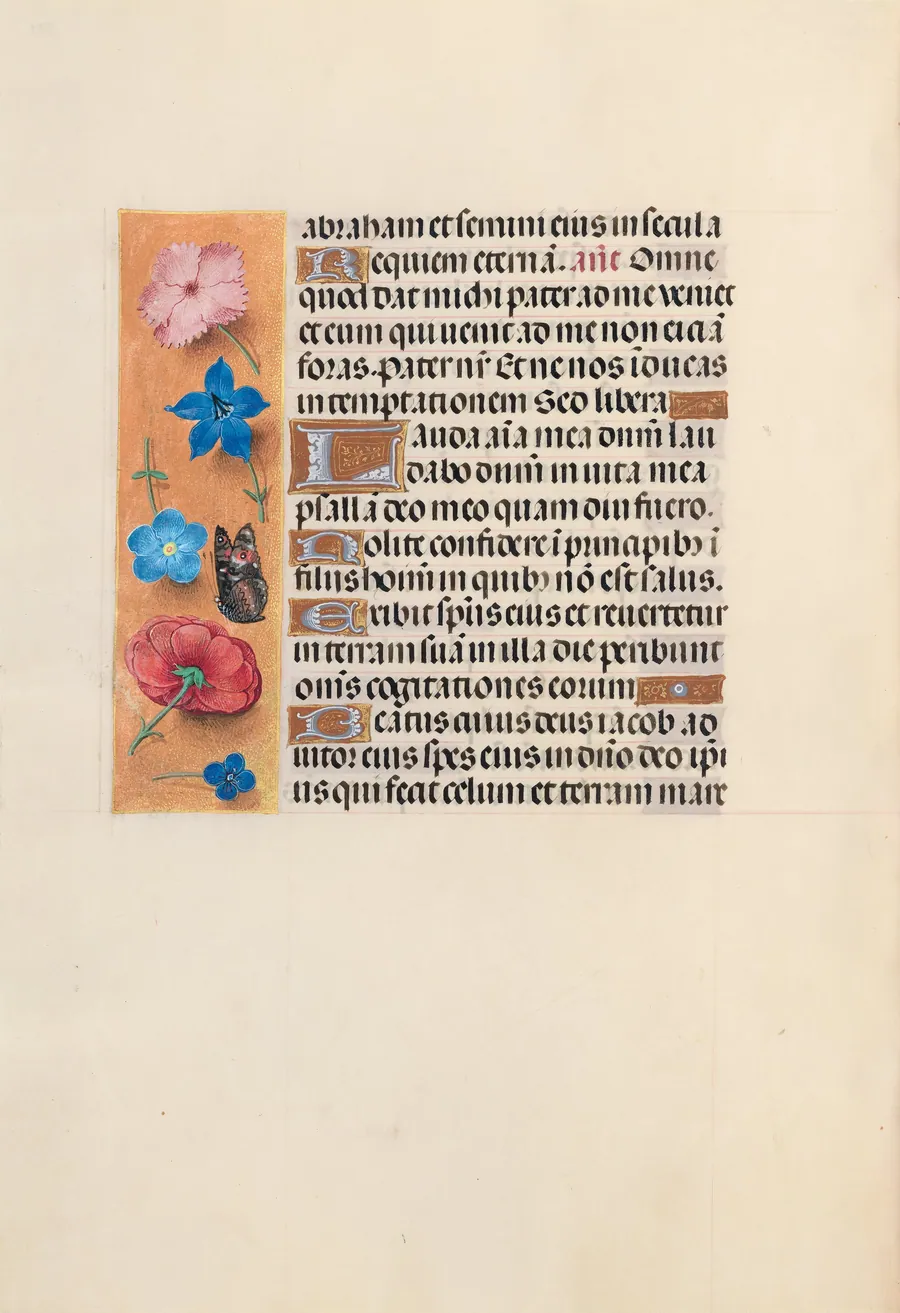 abraham et semini eius in secula
Requiem eternā. añt Omne
quod dat michi pater ad me veniet
et eum qui uenit ad me non eiciā
foras. Pater nr̄ Et ne nos īducas
in temptationem Sed libera
Lauda aīa mea dnm̄ lau
dabo dnm̄ in uita mea
psallā deo meo quam diu fuero.
Nolite confidere ī principibꝫ ī
filiis hoīm in quibꝫ nō est salus.
Exibit spūs eius et reuertetur
in terram suā in illa die peribunt
om̄s cogitationes eorum
Beatus cuius deus iacob ad
iutor eius spes eius in dño deo ipī
us qui fecit celum et terram mare